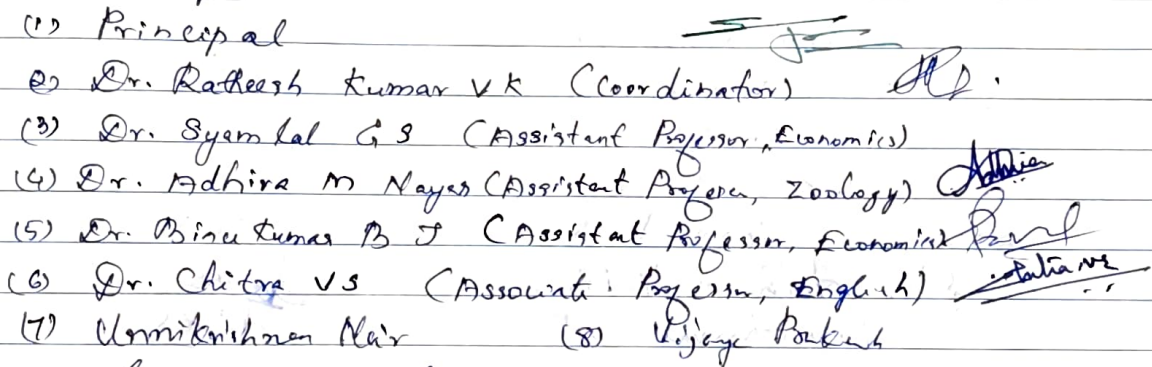 (1) Principal
2) Dr. Ratheesh Kumar V K (Coordinator)
(3) Dr. Syam Lal G S (Assistant Professor, Economics)
(4) Dr. Adhira M Nayar (Assistant Professor, Zoology)
(5) Dr. Binu Kumar B J (Assistant Professor, Economics)
(6) Dr. Chitra V S (Associate Professor, English)
(7) Unnikrishnan Nair (8) Vijaya